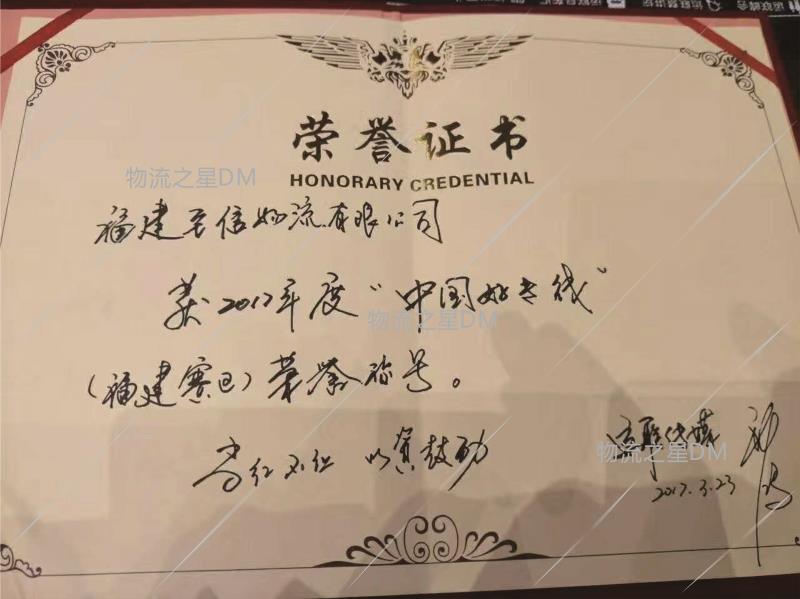 荣誉证书
HONORARY CREDENTIAL
物流之星DM
福建至信物流有限公司
获2017年度“中国好专线”
物流之星DM
（福建赛区）荣誉称号。
以资鼓励
运联传媒
物流之星DM
2017.3.23